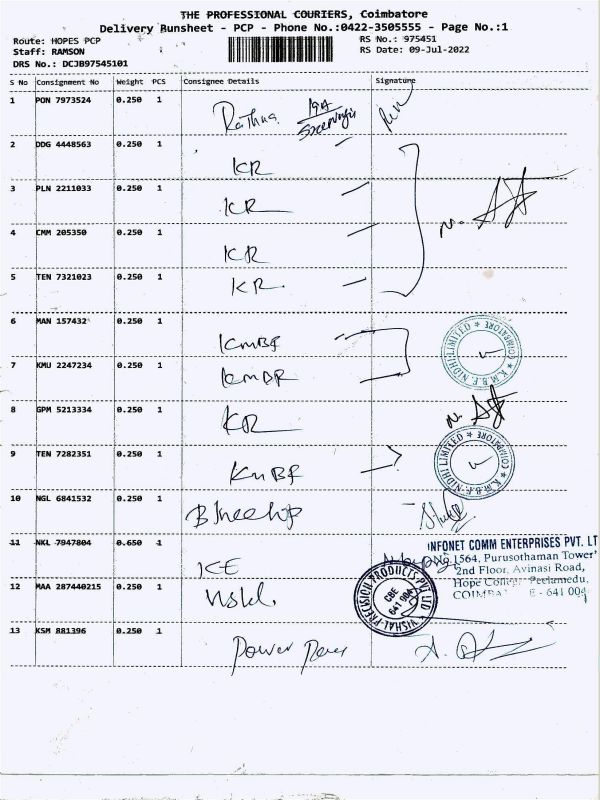 THE PROFESSIONAL COURIERS, Coimbatore
Delivery Runsheet - PCP - Phone No.:0422-3505555 - Page No.:1
Route: HOPES PCP
RS No.: 975451
Staff: RAMSON
RS Date: 09-Jul-2022
DRS No.: DCJB97545101
S No Consignment No Weight PCS Consignee Details Signature
1 PON 7973524 0.250 1
2 DDG 4448563 0.250 1 KR
3 PLN 2211033 0.250 1 KR
4 CMM 205350 0.250 1 KR
5 TEN 7321023 0.250 1 KR
6 MAN 157432 0.250 1 KMBF
K.M.B.F. NIDHI LIMITED * COIMBATORE *
7 KMU 2247234 0.250 1
8 GPM 5213334 0.250 1 KR
9 TEN 7282351 0.250 1 KMBF
K.M.B.F. NIDHI LIMITED * COIMBATORE *
10 NGL 6841532 0.250 1
11 NKL 7947804 0.650 1 ICE
INFONET COMM ENTERPRISES PVT. LT
1564, Purusothaman Tower'
2nd Floor, Avinasi Road,
Hope College Peelamedu,
E - 641 004
VISHAL PRECISION PRODUCTS PVT LTD
CBE
641 004
12 MAA 287440215 0.250 1
13 KSM 881396 0.250 1 Power